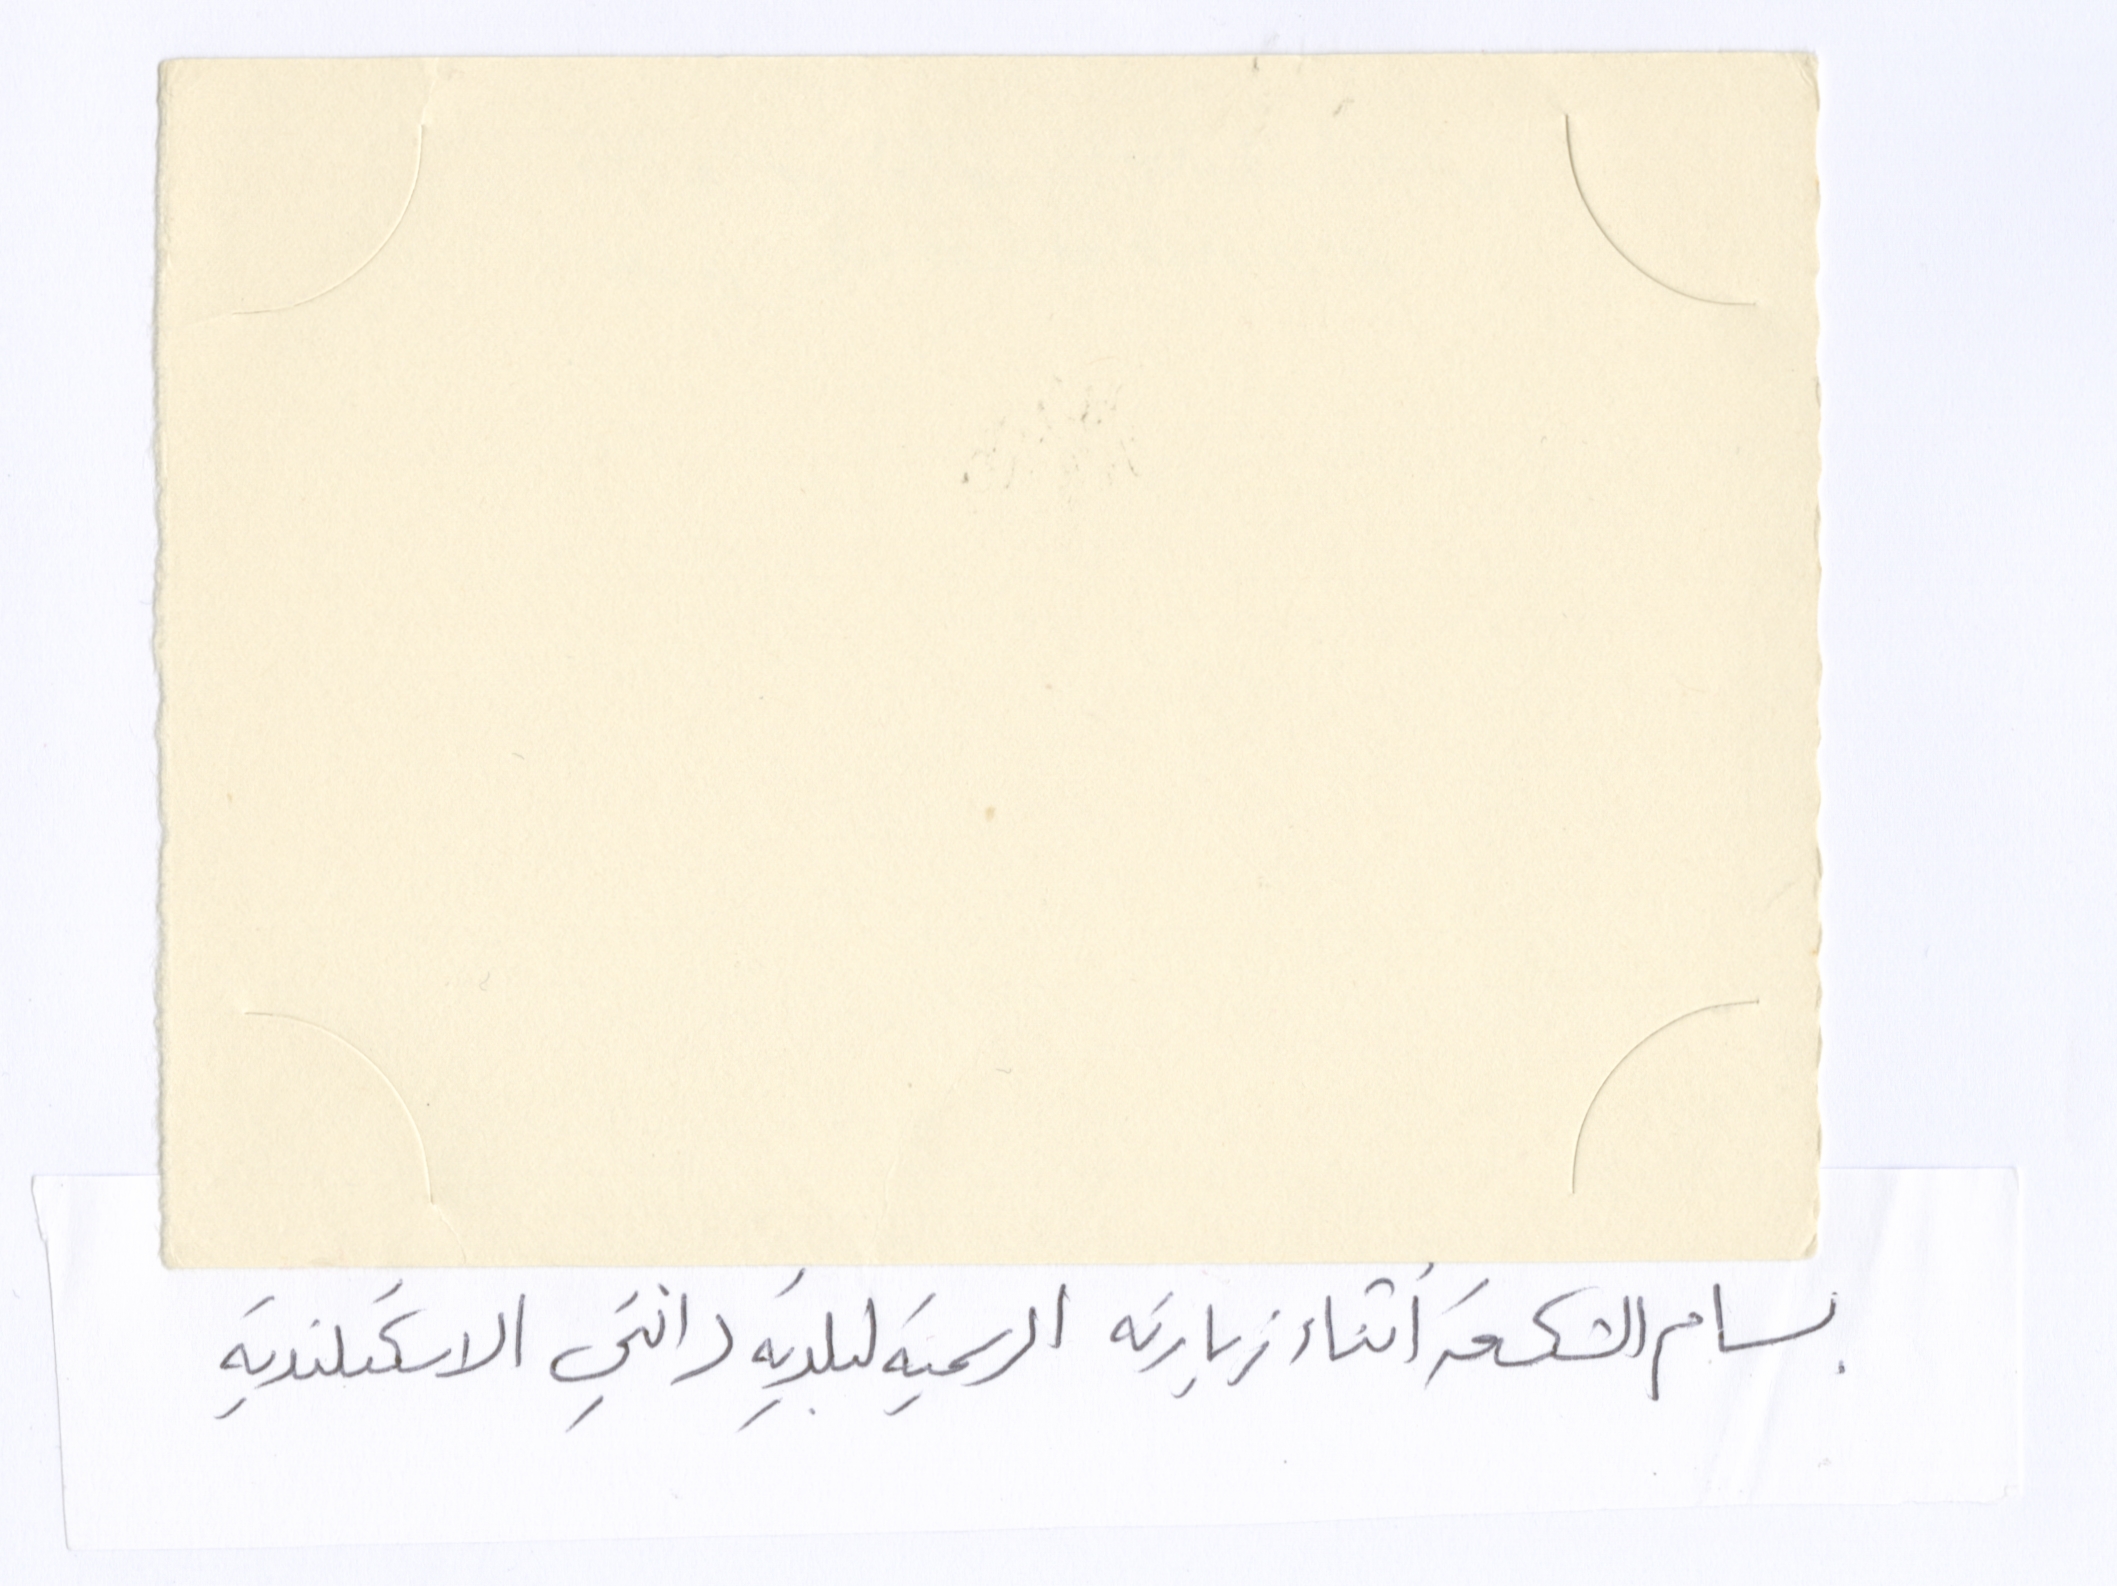 بسام الشكعة أثناء زيارته الرسمية لبلدية دانتي الاسكتلندية